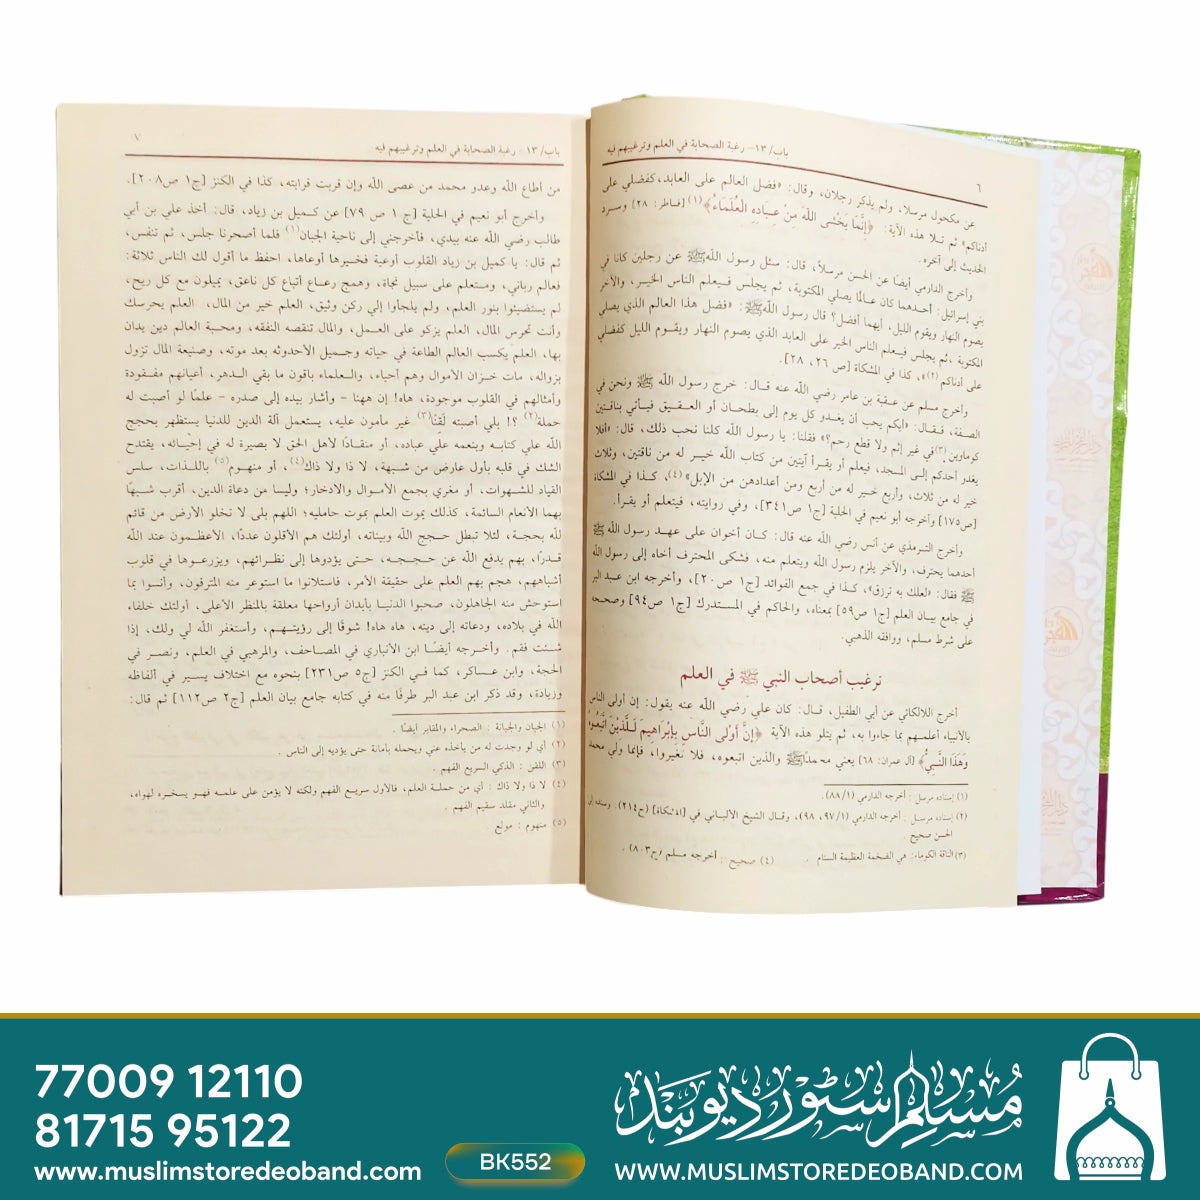 باب/ ١٣- رغبة الصحابة في العلم وترغيبهم فيه
٦
عن مكحول مرسلا، ولم يذكر رجلان، وقال: «فضل العالم على العابد، كفضلي على
أدناكم» ثم تلا هذه الآية: ﴿إِنَّمَا يَخْشَى اللَّهَ مِنْ عِبَادِهِ الْعُلَمَاءُ﴾(١) [فاطر: ٢٨] وسرد
الحديث إلى آخره.
وأخرج الدارمي أيضًا عن الحسن مرسلاً، قال: سئل رسول اللهﷺ عن رجلين كانا في
بني إسرائيل: أحدهما كان عالمًا يصلي المكتوبة، ثم يجلس فيعلم الناس الخير، والآخر
يصوم النهار ويقوم الليل، أيهما أفضل؟ قال رسول اللهﷺ: «فضل هذا العالم الذي يصلي
المكتوبة ، ثم يجلس فيعلم الناس الخير على العابد الذي يصوم النهار ويقوم الليل كفضلي
على أدناكم (٢)»، كذا في المشكاة [ص ٢٦، ٢٨].
وأخرج مسلم عن عقبة بن عامر رضي الله عنه قال: خرج رسول الله ﷺ ونحن في
الصفة، فقال: «أيكم يحب أن يغدو كل يوم إلى بطحان أو العقيق فيأتي بناقتين
كوماوين(٣)في غير إثم ولا قطع رحم؟» فقلنا: يا رسول الله كلنا نحب ذلك، قال: «أفلا
يغدو أحدكم إلى المسجد، فيعلم أو يقرأ آيتين من كتاب الله خير له من ناقتين، وثلاث
خير له من ثلاث، وأربع خير له من أربع ومن أعدادهن من الإبل» (٤)، كذا في المشكاة
[ص١٧٥] وأخرجه أبو نعيم في الحلية [ج١ ص٣٤١]، وفي روايته، فيتعلم أو يقرأ.
وأخرج الترمذي عن أنس رضي الله عنه قال: كان أخوان على عهد رسول الله ﷺ
أحدهما يحترف، والآخر يلزم رسول الله ويتعلم منه، فشكى المحترف أخاه إلى رسول الله
ﷺ فقال: «لعلك به ترزق»، كذا في جمع الفوائد [ج١ ص٢٠]، وأخرجه ابن عبد البر
في جامع بيان العلم [ج١ ص٥٩] بمعناه، والحاكم في المستدرك [ج١ ص٩٤] وصححه
على شرط مسلم، ووافقه الذهبي.
ترغيب أصحاب النبي ﷺ في العلم
أخرج اللالكائي عن أبي الطفيل، قال: كان علي رضي الله عنه يقول: إن أولى الناس
بالأنبياء أعلمهم بما جاءوا به، ثم يتلو هذه الآية ﴿إِنَّ أَوْلَى النَّاسِ بِإِبْرَاهِيمَ لَلَّذِينَ اتَّبَعُوهُ
وَهَذَا النَّبِيُّ﴾ [آل عمران: ٦٨] يعني محمدًاﷺ والذين اتبعوه، فلا تغيروا، فإنما ولي محمد
(١) إسناده مرسل : أخرجه الدارمي (٨٨/١).
(٢) إسناده مرسل : أخرجه الدارمي (٩٧/١، ٩٨)، وقال الشيخ الألباني في [المشكاة] (ح٢١٤): وسنده إلى
الحسن صحيح .
(٣) الناقة الكوماء: هي الضخمة العظيمة السنام . (٤) صحيح : أخرجه مسلم (ح٨٠٣) .
باب/ ١٣- رغبة الصحابة في العلم وترغيبهم فيه
٧
من أطاع الله وعدو محمد من عصى الله وإن قربت قرابته، كذا في الكنز [ج١ ص٢٠٨].
وأخرج أبو نعيم في الحلية [ج ١ ص ٧٩] عن كميل بن زياد، قال: أخذ علي بن أبي
طالب رضي الله عنه بيدي، فأخرجني إلى ناحية الجبان(١) فلما أصحرنا جلس، ثم تنفس،
ثم قال: يا كميل بن زياد القلوب أوعية فخيرها أوعاها، احفظ ما أقول لك الناس ثلاثة:
فعالم رباني، ومتعلم على سبيل نجاة، وهمج رعاع أتباع كل ناعق، يميلون مع كل ريح،
لم يستضيئوا بنور العلم، ولم يلجأوا إلى ركن وثيق، العلم خير من المال، العلم يحرسك
وأنت تحرس المال، العلم يزكو على العمل، والمال تنقصه النفقه، ومحبة العالم دين يدان
بها، العلم يكسب العالم الطاعة في حياته وجميل الأحدوثه بعد موته، وصنيعة المال تزول
بزواله، مات خزان الأموال وهم أحياء، والعلماء باقون ما بقي الدهر، أعيانهم مفقودة
وأمثالهم في القلوب موجودة، هاه! إن ههنا - وأشار بيده إلى صدره - علمًا لو أصبت له
حملة(٢) ؟! بلى أصبته لَقِنًا(٣) غير مأمون عليه، يستعمل آلة الدين للدنيا يستظهر بحجج
الله على كتابه وبنعمه على عباده، أو منقادًا لأهل الحق لا بصيرة له في إحيائه، يقتدح
الشك في قلبه بأول عارض من شبهة، لا ذا ولا ذاك(٤)، أو منهوم(٥) باللذات، سلس
القياد للشهوات، أو مغري بجمع الأموال والادخار؛ وليسا من دعاة الدين، أقرب شبهًا
بهما الأنعام السائمة، كذلك يموت العلم بموت حامليه؛ اللهم بلى لا تخلو الأرض من قائم
لله بحجة، لئلا تبطل حجج الله وبيناته، أولئك هم الأقلون عددًا، الأعظمون عند الله
قدرًا، بهم يدفع الله عن حججه، حتى يؤدوها إلى نظرائهم، ويزرعوها في قلوب
أشباههم، هجم بهم العلم على حقيقة الأمر، فاستلانوا ما استوعر منه المترفون، وأنسوا بما
استوحش منه الجاهلون، صحبوا الدنيا بأبدان أرواحها معلقة بالمنظر الأعلى، أولئك خلفاء
الله في بلاده، ودعاته إلى دينه، هاه هاه! شوقًا إلى رؤيتهم، وأستغفر الله لي ولك، إذا
شئت فقم. وأخرجه أيضًا ابن الأنباري في المصاحف، والمرهبي في العلم، ونصر في
الحجة، وابن عساكر، كما في الكنز [ج٥ ص٢٣١] بنحوه مع اختلاف يسير في ألفاظه
وزيادة، وقد ذكر ابن عبد البر طرفًا منه في كتابه جامع بيان العلم [ج٢ ص١١٢] ثم قال:
(١) الجبان والجبانة : الصحراء والمقابر أيضًا .
(٢) أي لو وجدت له من يأخذه عني ويحمله بأمانة حتى يؤديه إلى الناس .
(٣) اللقن : الذكي السريع الفهم .
(٤) لا ذا ولا ذاك : أي من حملة العلم، فالأول سريع الفهم ولكنه لا يؤمن على علمه فهو يسخره لهواه،
والثاني مقلد سقيم الفهم .
(٥) منهوم : مولع .
77009 12110
81715 95122
www.muslimstoredeoband.com
BK552
مسلم سٹور دیوبند
WWW.MUSLIMSTOREDEOBAND.COM